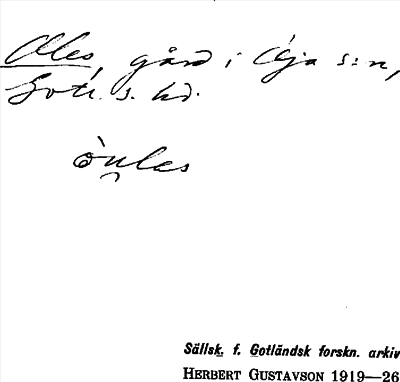 Oles, gård i Öja s:n,
Gotl. s. hd.
òu̯les
Sällsk. f. Gotländsk forskn. arkiv
HERBERT GUSTAVSON 1919—26